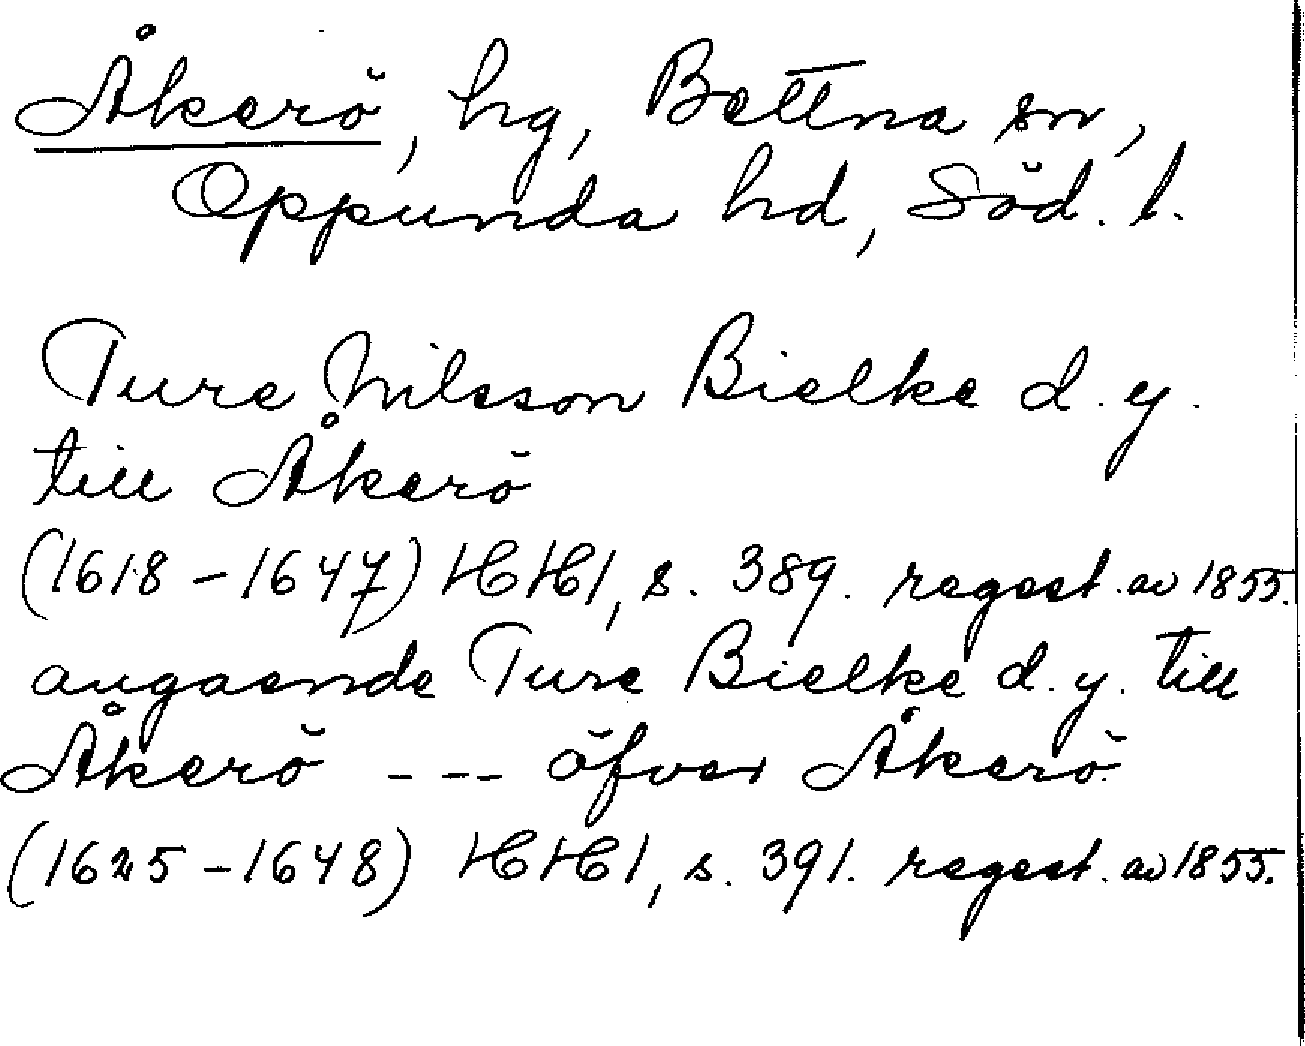 Åkerö, hg, Bettna sn,
Oppunda hd, Söd. l.
Ture Nilsson Bielke d. y.
till Åkerö
(1618-1647) HH1, s. 389. regest. av 1855.
angaende Ture Bielke d. y. till
Åkerö --- öfver Åkerö
(1625-1648) HH1, s. 391. regest. av 1855.